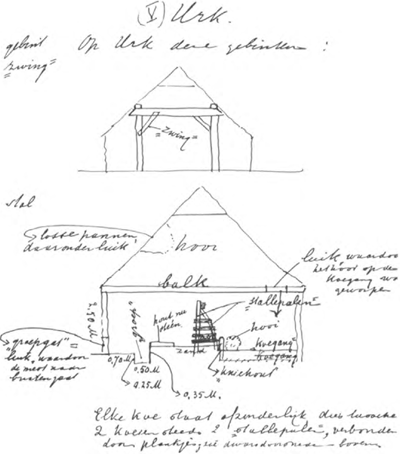 (V) Urk.
gebint
"zwing"
Op Urk deze gebinten :
"zwing"
stal
losse pannen
daaronder luik
hooi
luik waardoor
het hooi op de
koegang wo
geworpen
balk
2.50 M
"stallepalen"
hooi
"groepgat"
luik, waardoor
de mest naar
buiten gaat
zand
"koegang"
"kniehout"
0.70 M.
0.50 M.
0.25 M.
0.35 M.
Elke koe staat afzonderlijk dus tusschen
2 koeien steeds 2 "stallepalen", verbonden
door plankjes, boven